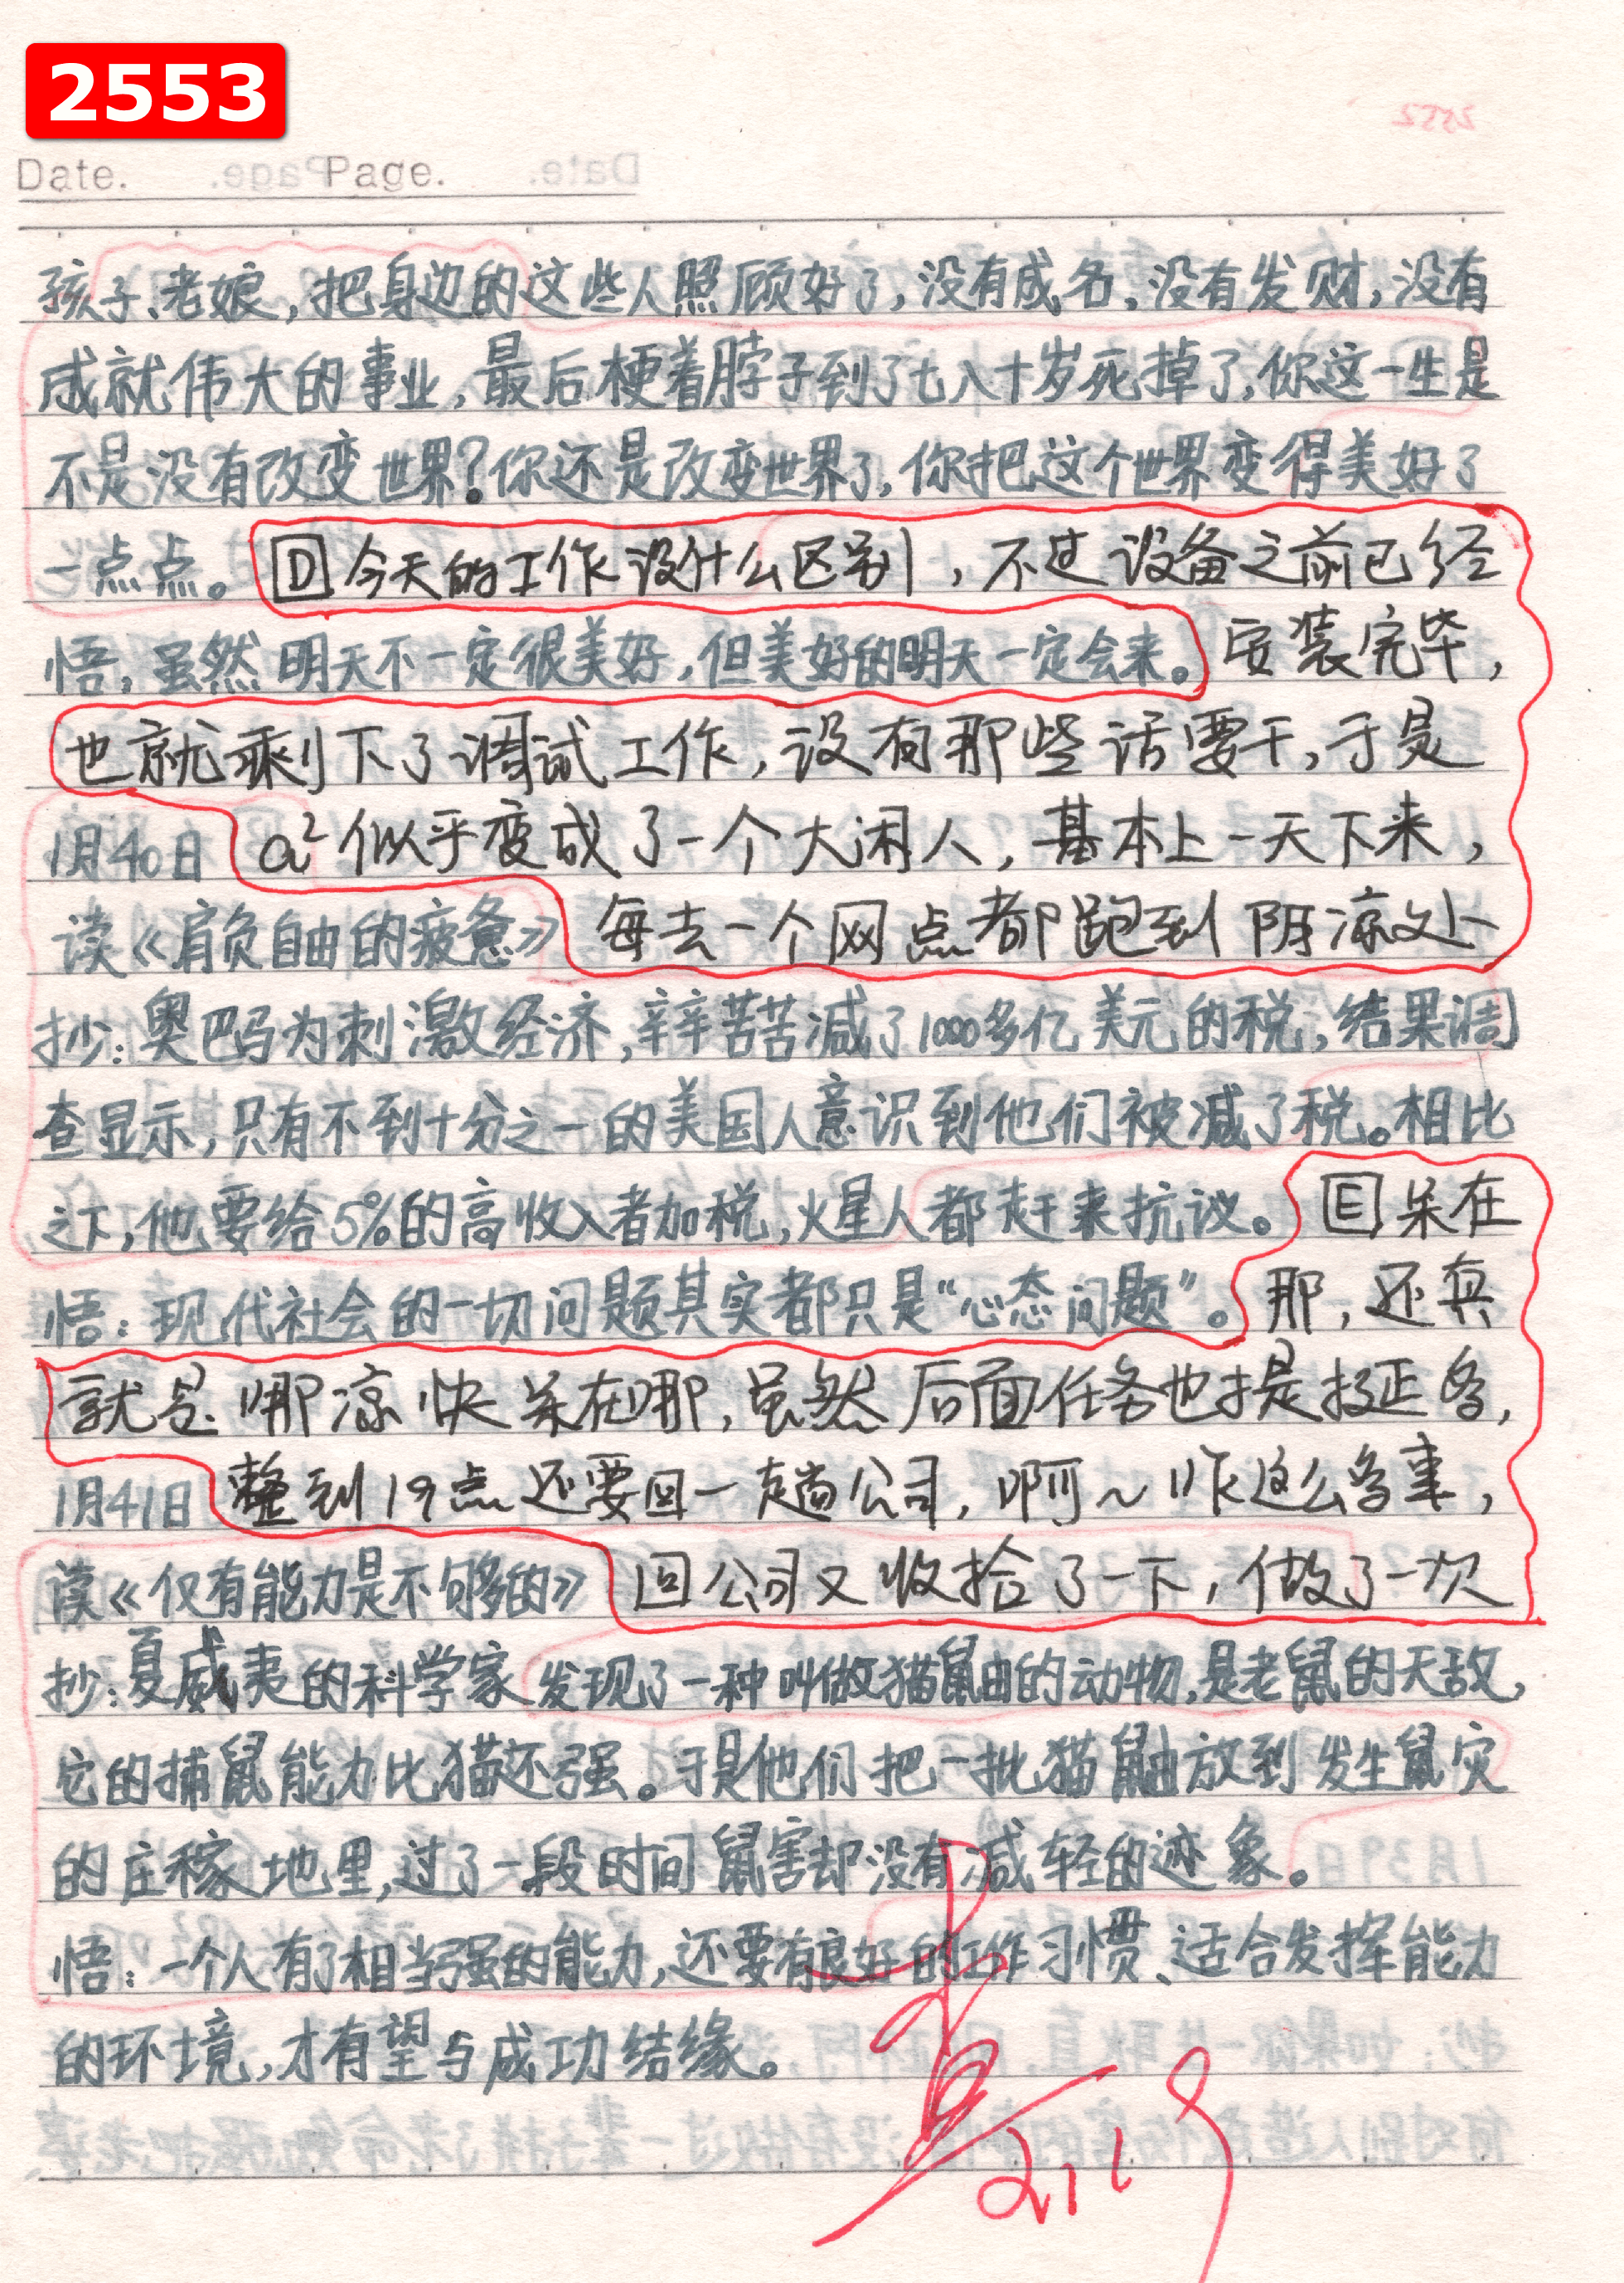 2553
Date. Page.
孩子、老娘，把身边的这些人照顾好了，没有成名，没有发财，没有
成就伟大的事业，最后梗着脖子到了七八十岁死掉了，你这一生是
不是没有改变世界？你还是改变世界了，你把这个世界变得美好了
一点点。 D 今天的工作没什么区别，不过设备之前已经
悟，虽然明天不一定很美好，但美好的明天一定会来。 安装完毕，
也就剩下了调试工作，没有那些活要干，于是
1月40日 a² 似乎变成了一个大闲人，基本上一天下来，
读《肩负自由的疲惫》 每去一个网点都跑到阴凉处
抄：奥巴马为刺激经济，辛辛苦苦减了1000多亿美元的税，结果调
查显示，只有不到十分之一的美国人意识到他们被减了税。相比
之下，他要给5%的高收入者加税，火星人都赶来抗议。 E 呆在
悟：现代社会的一切问题其实都只是“心态问题”。 那，还真
就是哪凉快养在哪，虽然后面任务也提挺多，
1月41日 整到19点还要回一趟公司，啊～咋这么多事，
读《仅有能力是不够的》 回公司又收拾了一下，做了一次
抄：夏威夷的科学家发现了一种叫做猫鼬的动物，是老鼠的天敌，
它的捕鼠能力比猫还强。于是他们把一批猫鼬放到发生鼠灾
的庄稼地里，过了一段时间鼠害却没有减轻的迹象。
悟：一个人有了相当强的能力，还要有良好的工作习惯、适合发挥能力
的环境，才有望与成功结缘。